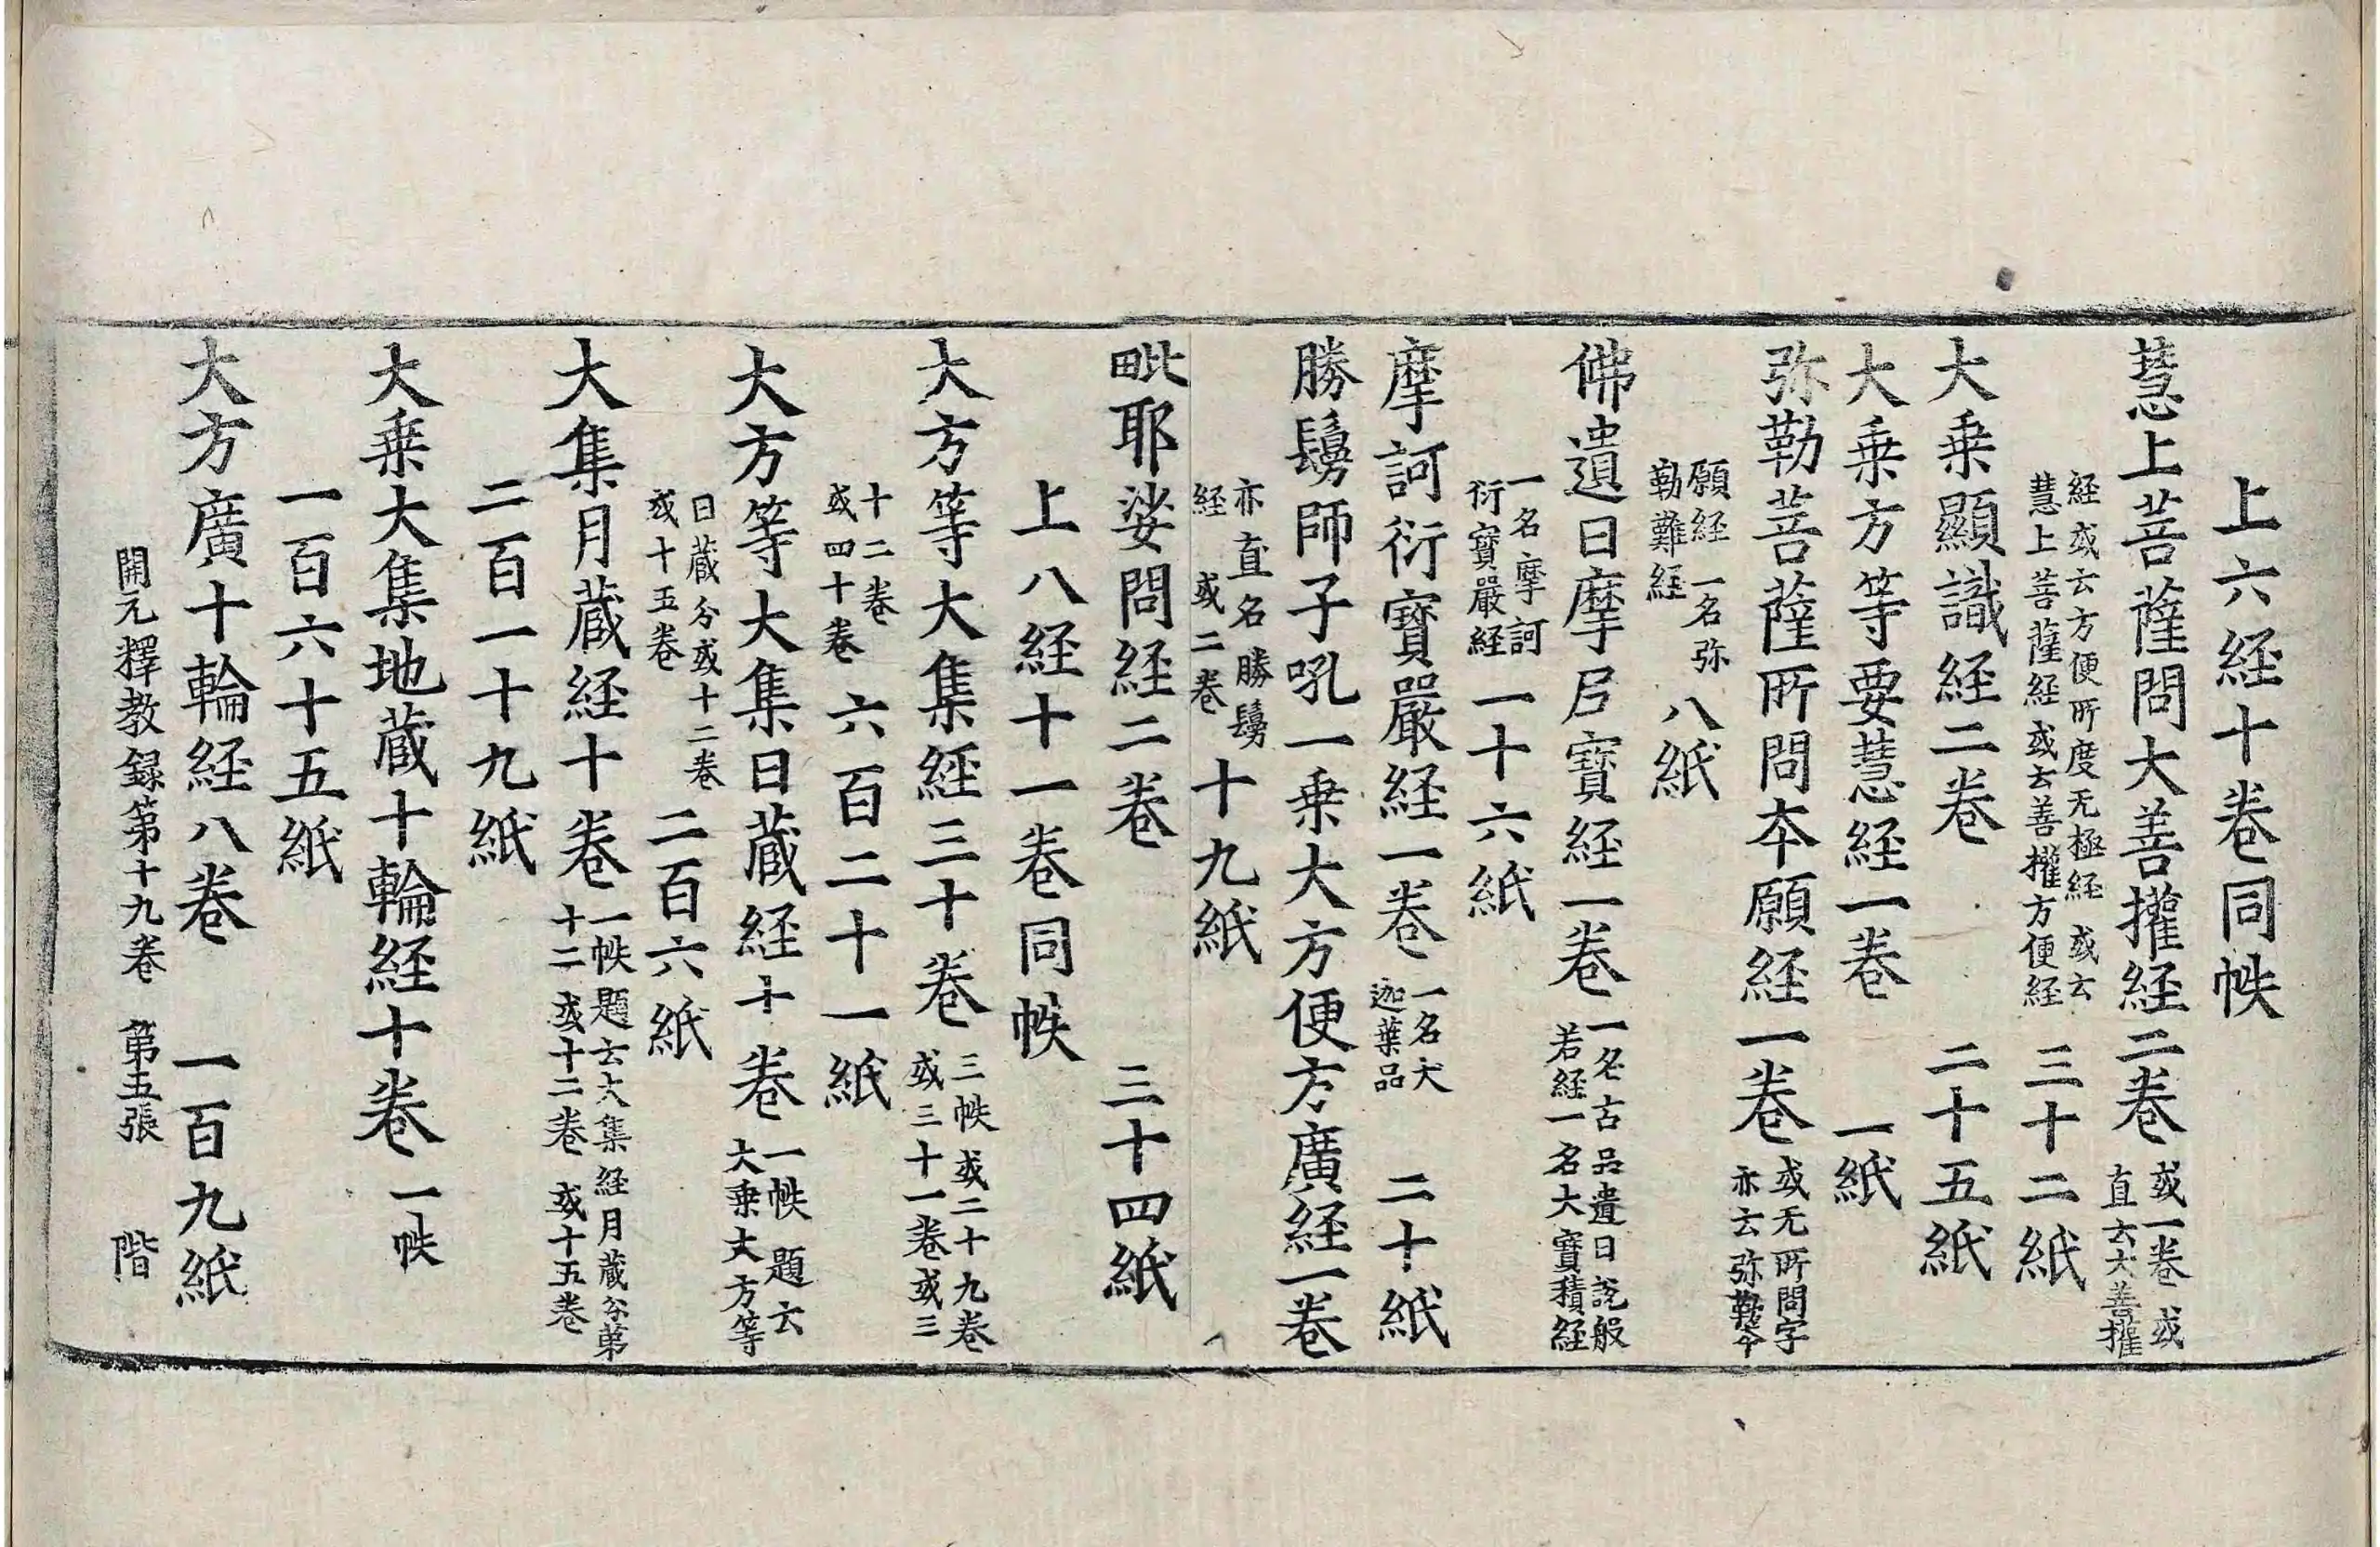 上六経十卷同帙
慧上菩薩問大善擢経二卷 或一卷 或直云大善擢
経或云方便所度无極経 或云慧上菩薩経 或云善擢方便経 三十二紙
大乗顯識経二卷 二十五紙
大乗方等要慧経一卷 一紙
弥勒菩薩所問夲願経一卷 或无所問字亦云弥勒夲
願経 一名弥勒難経 八紙
佛遺日摩尼寶経一卷 一名古品遺日說般若経 一名大寶積経
一名摩訶衍寶嚴経 一十六紙
摩訶衍寶嚴経一卷 一名大迦葉品 二十紙
勝鬘師子吼一乗大方便方廣経一卷
亦直名勝鬘経 或二卷 十九紙
毗耶娑問経二卷 三十四紙
上八経十一卷同帙
大方等大集経三十卷 三帙 或二十九卷或三十一卷或三
十二卷或四十卷 六百二十一紙
大方等大集日蔵経十卷 一帙 題云大乗大方等
日蔵分或十二卷或十五卷 二百六紙
大集月蔵経十卷 一帙題云大集経月蔵分第十二 或十二卷 或十五卷
二百一十九紙
大乗大集地蔵十輪経十卷 一帙
一百六十五紙
大方廣十輪経八卷 一百九紙
開元釋教録第十九卷 第五張 階